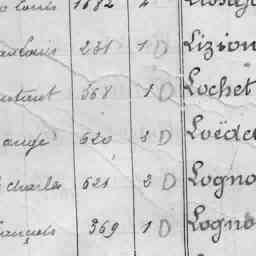 louis 1682 2
louis 231 1 D Lizion
568 1 D Lochet
ange 620 3 D Loëde
charles 621 2 D Logno
françois 369 1 D Logno